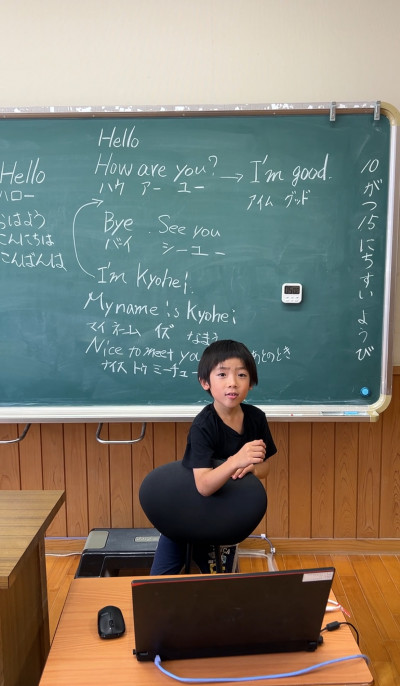 Hello
Hello
ハロー
How are you? → I'm good.
ハウ アー ユー
アイム グッド
はよう
こんにちは
こんばんは
Bye . See you
バイ シーユー
I'm Kyohei.
My name is Kyohei
マイ ネーム イズ なまえ
Nice to meet
ナイス トゥ ミーチュー
のとき
10がつ15にちすいようび